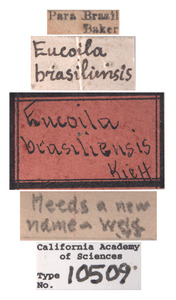 Para Brazil
Baker
Eucoila
brasiliensis
Eucoila
brasiliensis
Kieff
Needs a new
name -
California Academy
of Sciences
Type
No. 10509